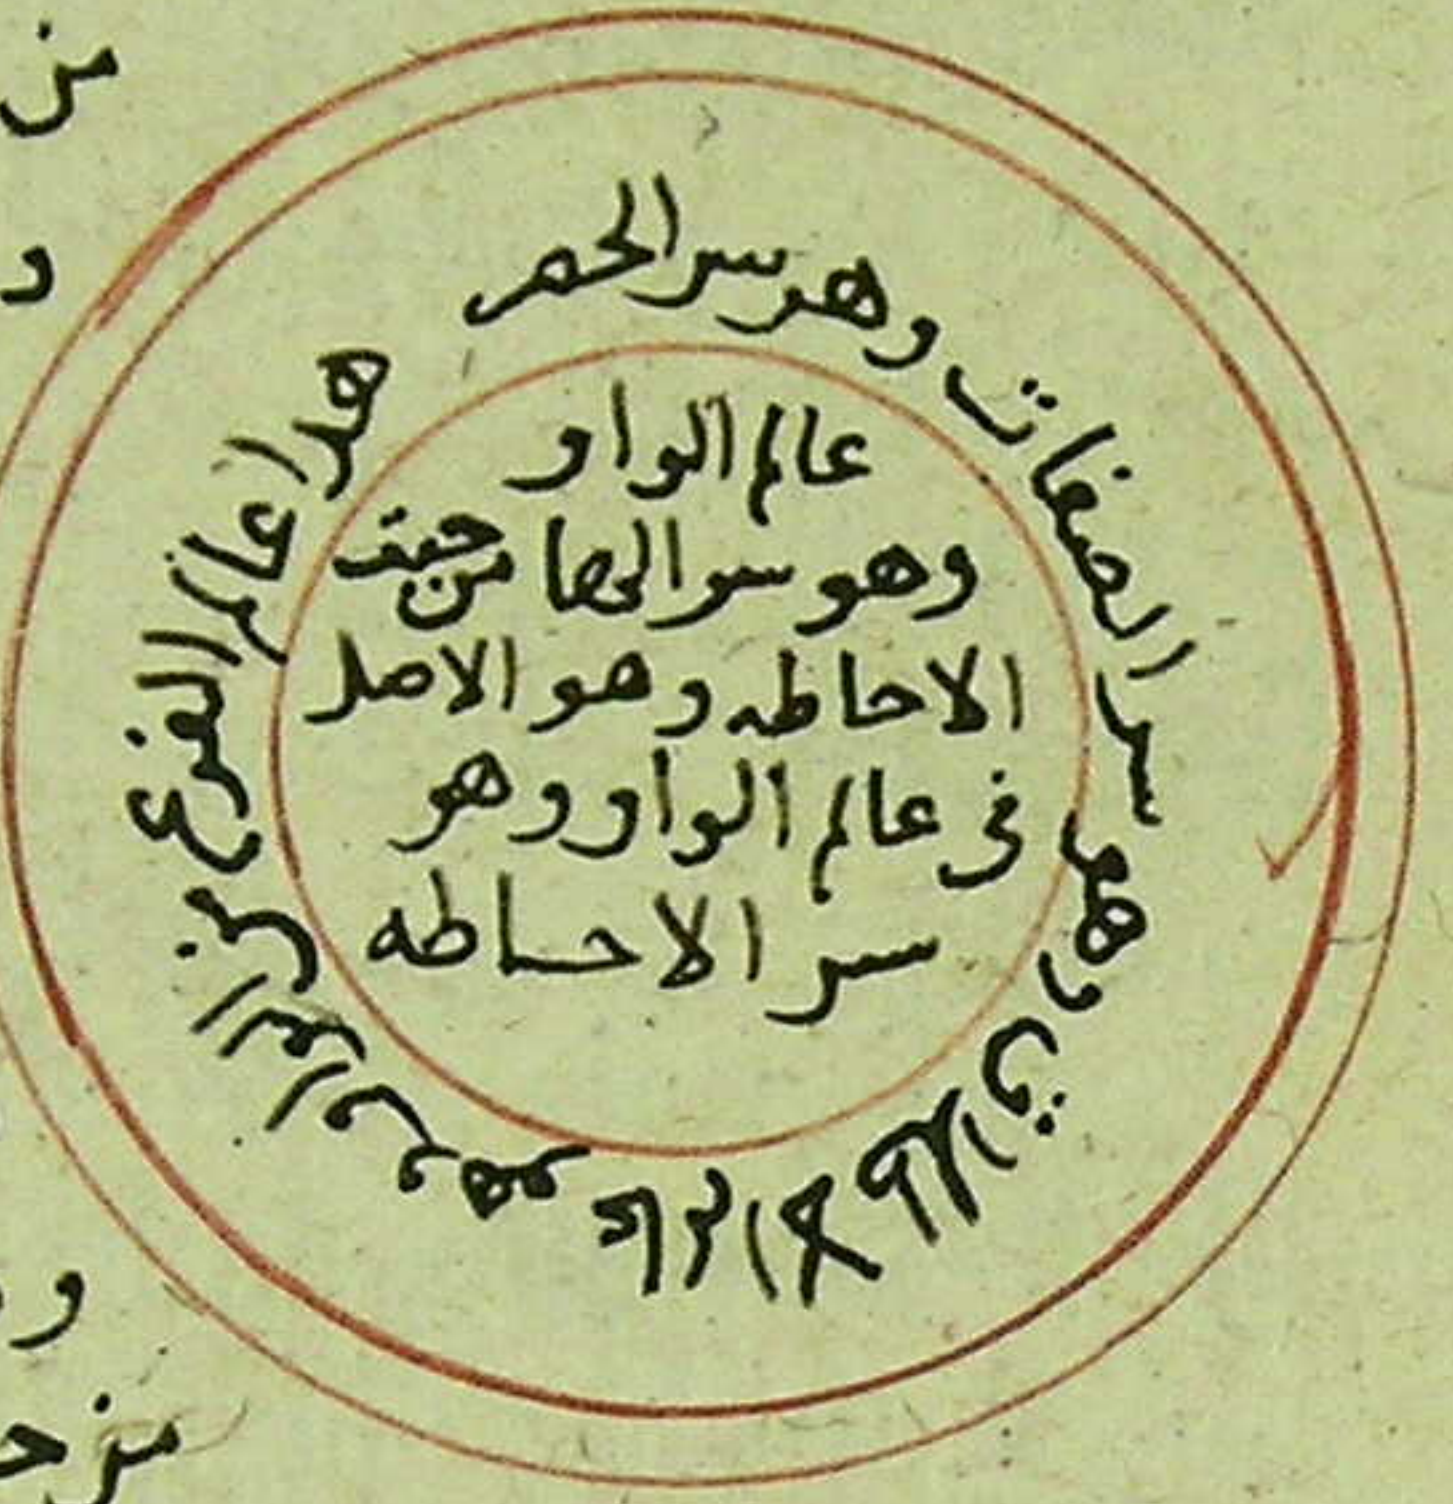 من
د
هدا عالم الفرع من الواو
وهو سر الصفات وهو سر الحم
عالم الواو
وهو سر الها من حيث
الاحاطه وهو الاصل
في عالم الواو وهو
سر الاحاطه
و
من